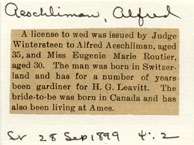 Aeschliman, Alfred
A license to wed was issued by Judge
Wintersteen to Alfred Aeschliman, aged
35, and Miss Eugenie Marie Routier,
aged 30. The man was born in Switzer-
land and has for a number of years
been gardiner for H. G. Leavitt. The
bride-to be was born in Canada and has
also been living at Ames.
Sv 28 Sep 1899 4:2